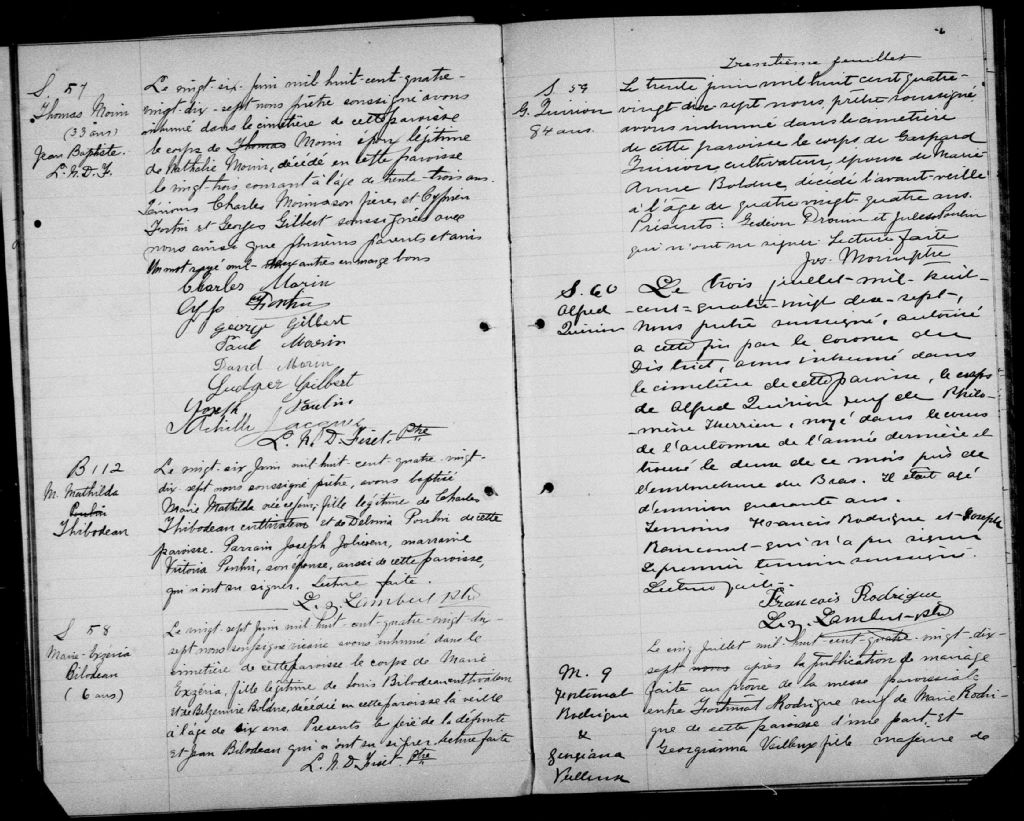 S. 57
Thomas Morin
(33 ans)
Jean Baptiste.
L. N. D. F.
Le vingt-six Juin mil huit-cent-quatre-
vingt-dix-sept nous prêtre soussigné avons
inhumé dans le cimetière de cette paroisse
le corps de Thomas Morin époux légitime
de Nathalie Morin, décédé en cette paroisse
le vingt-trois courant à l'âge de trente-trois ans.
Témoins Charles Morin son frère, et Cyprien
Fortin et Georges Gilbert soussignés avec
nous ainsi que plusieurs parents et amis
Un mot rayé nul - deux autres en marge bons
Charles Morin
George Gilbert
Paul Morin
David Morin
Gudger Gilbert
Joseph Poulin
Achille
L. N. D. Fiset. Ptre
B 112
M. Mathilda
Poulin
Thibodeau
Le vingt-six Juin mil huit-cent-quatre-vingt-
dix-sept nous soussigné prêtre, avons baptisé
Marie Mathilde née ce jour, fille légitime de Charles
Thibodeau cultivateur et de Poulin de cette
paroisse. Parrain Joseph marraine
Victoria Poulin, son épouse, aussi de cette paroisse,
qui n'ont su signer. Lecture faite.
L. Z. Lambert ptre
S 58
Marie-Exzéria
Bilodeau
(6 ans)
Le vingt-sept Juin mil huit-cent-quatre-vingt-dix-
sept nous soussigné vicaire avons inhumé dans le
cimetière de cette paroisse le corps de Marie
Exzéria, fille légitime de Louis Bilodeau cultivateur
et de Boldue, décédée en cette paroisse la veille
à l'âge de six ans. Présents le père de la défunte
et Jean Bilodeau qui n'ont su signer. Lecture faite
L. N. D. Fiset Ptre
Trentième feuillet
S 59
G. Quirion
84 ans.
Le trente juin mil huit cent quatre-
vingt dix-sept nous, prêtre soussigné
avons inhumé dans le cimetière
de cette paroisse le corps de Gaspard
Quirion cultivateur, épouse de Marie-
Anne Bolduc, décédé l'avant-veille
à l'âge de quatre vingt-quatre ans.
Présents: Gédéon Drouin et Jules Poulin
qui n'ont su signer. Lecture faite
Jos. Morin ptre
S. 60
Alfred
Quirion
Le trois juillet-mil-huit-
-cent-quatre-vingt dix-sept,
Nous prêtre soussigné, autorisé
a cette fin par le Coroner du
District, avons inhumé dans
le cimetière de cette paroisse, le corps
de Alfred Quirion veuf de Philo-
-mène Therrien, noyé dans le cours
de l'automne de l'année dernière et
trouvé le deux de ce mois près de
l'embouchure du Bras. Il était agé
d'environ quarante ans.
Temoins Francis Rodrigue et Joseph
Rancourt-qui n'a pu signer
Le premier temoin soussigné.
Lecture faite.
Francois Rodrigue
L. Z. Lambert ptre
M. 9
Rodrigue
&
Georgiana
Veilleux
Le cinq Juillet mil-huit-cent-quatre-vingt-dix-
sept nous après la publication de mariage
faite au prône de la messe paroissiale
entre Fortunat Rodrigue veuf de Marie Rodri-
gue de cette paroisse d'une part, et
Georgianna Veilleux fille majeure de